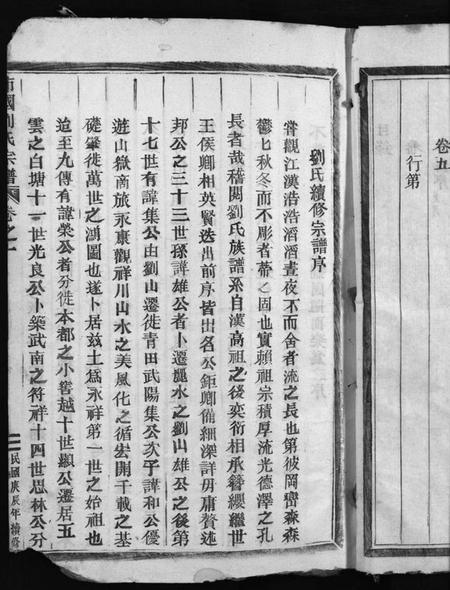 卷五
行第
劉氏續修宗譜序
嘗觀江漢浩浩滔滔晝夜不而舍者流之長也第彼岡巒森森
鬱七秋冬而不彫者蒂之固也實賴祖宗積厚流光德澤之孔
長者哉稽閱劉氏族譜系自漢高祖之後奕衍相承簪纓繼世
王侯卿相英賢迭出前序皆出名公鉅卿備細深詳毋庸贅述
邦公之三十三世孫諱雄公者卜遷麗水之劉山雄公之後第
十七世有諱集公由劉山遷徙青田武陽集公次子諱和公優
遊山嶽商旅永康觀祥川山水之美風化之循宏開千載之基
礎肇徙萬世之鴻圖也遂卜居茲土爲永祥第一世之始祖也
迨至九傳有諱榮公者分徙本都之小窖越十世顯公遷居五
雲之白塘十一世光良公卜築武南之符祥十四世思林公分
國劉氏宗譜
卷之一
民國庚辰年續修